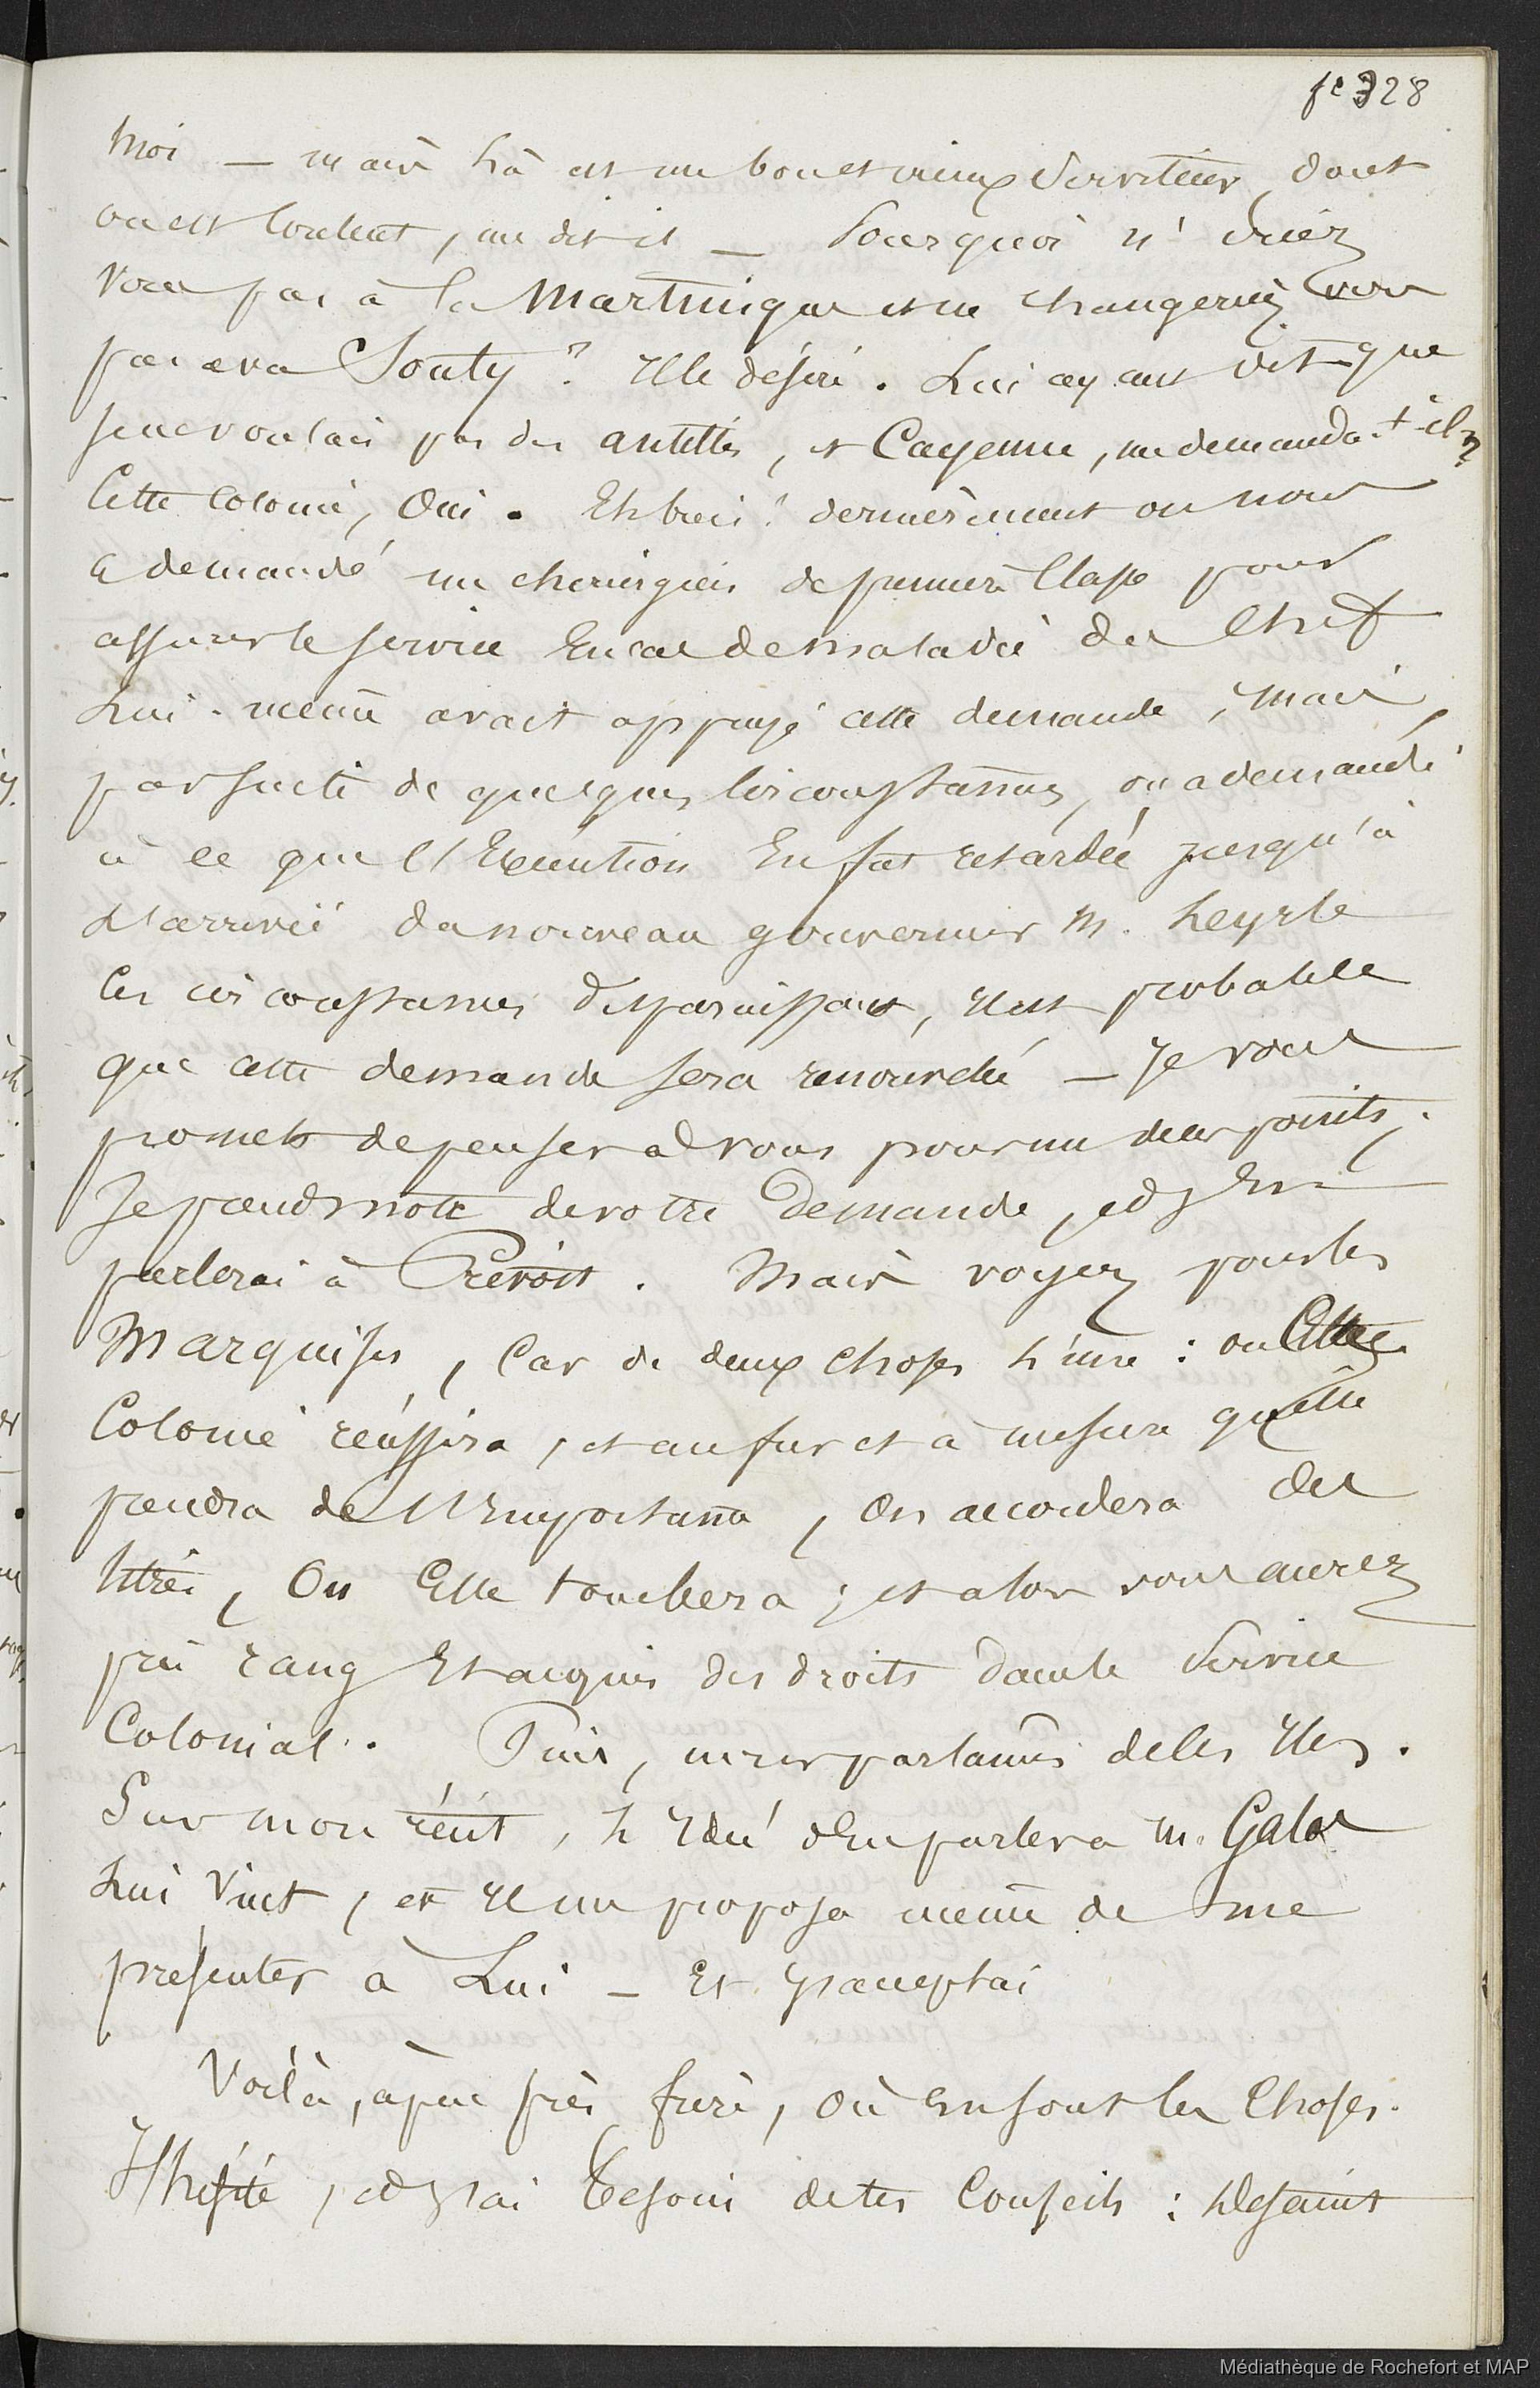 fo 328
Moi — mais là est un bon et vieux Serviteur, dont
on est Content, me dit-il — Pourquoi n'iriez
Vous pas à la Martinique et ne changeriez vous
pas avec Souty? Il le désire. Lui ayant dit que
je ne voulais pas des antilles, et Cayenne, me demanda-t-il?
Cette Colonie, Oui. Eh bien! dernièrement on nous
a demandé un chirurgien de première Classe pour
assurer le service En cas de maladie du Chef
Lui-même avait appuyé cette demande, mais,
par suite de quelques Circonstances, on a demandé
à ce que l'Exécution En fut retardée jusqu'à
L'arrivée du nouveau gouverneur M. Leyrle
Ces circonstances disparaissant, Il est probable
que cette demande sera renouvelée — Je vous
promets de penser à vous pour un des points;
Je prends note de votre Demande, et J'En
parlerai à Prévost. Mais voyez pour les
Marquises, Car de deux choses l'une: ou Cette
Colonie réussira, et au fur et à mesure qu'elle
prendra de l'Importance, On accordera des
titres, Ou Elle tombera; et alors vous aurez
pris rang Et acquis des droits dans le Service
Colonial. Puis, nous parlames de les Iles.
Sur mon récit, L'Idée d'En parler à M. Galos
Lui Vint, et Il me proposa même de me
présenter à Lui — Et J'acceptai
Voilà, à peu près, frère, où En sont les Choses.
J'hésite, et J'ai besoin de tes Conseils: